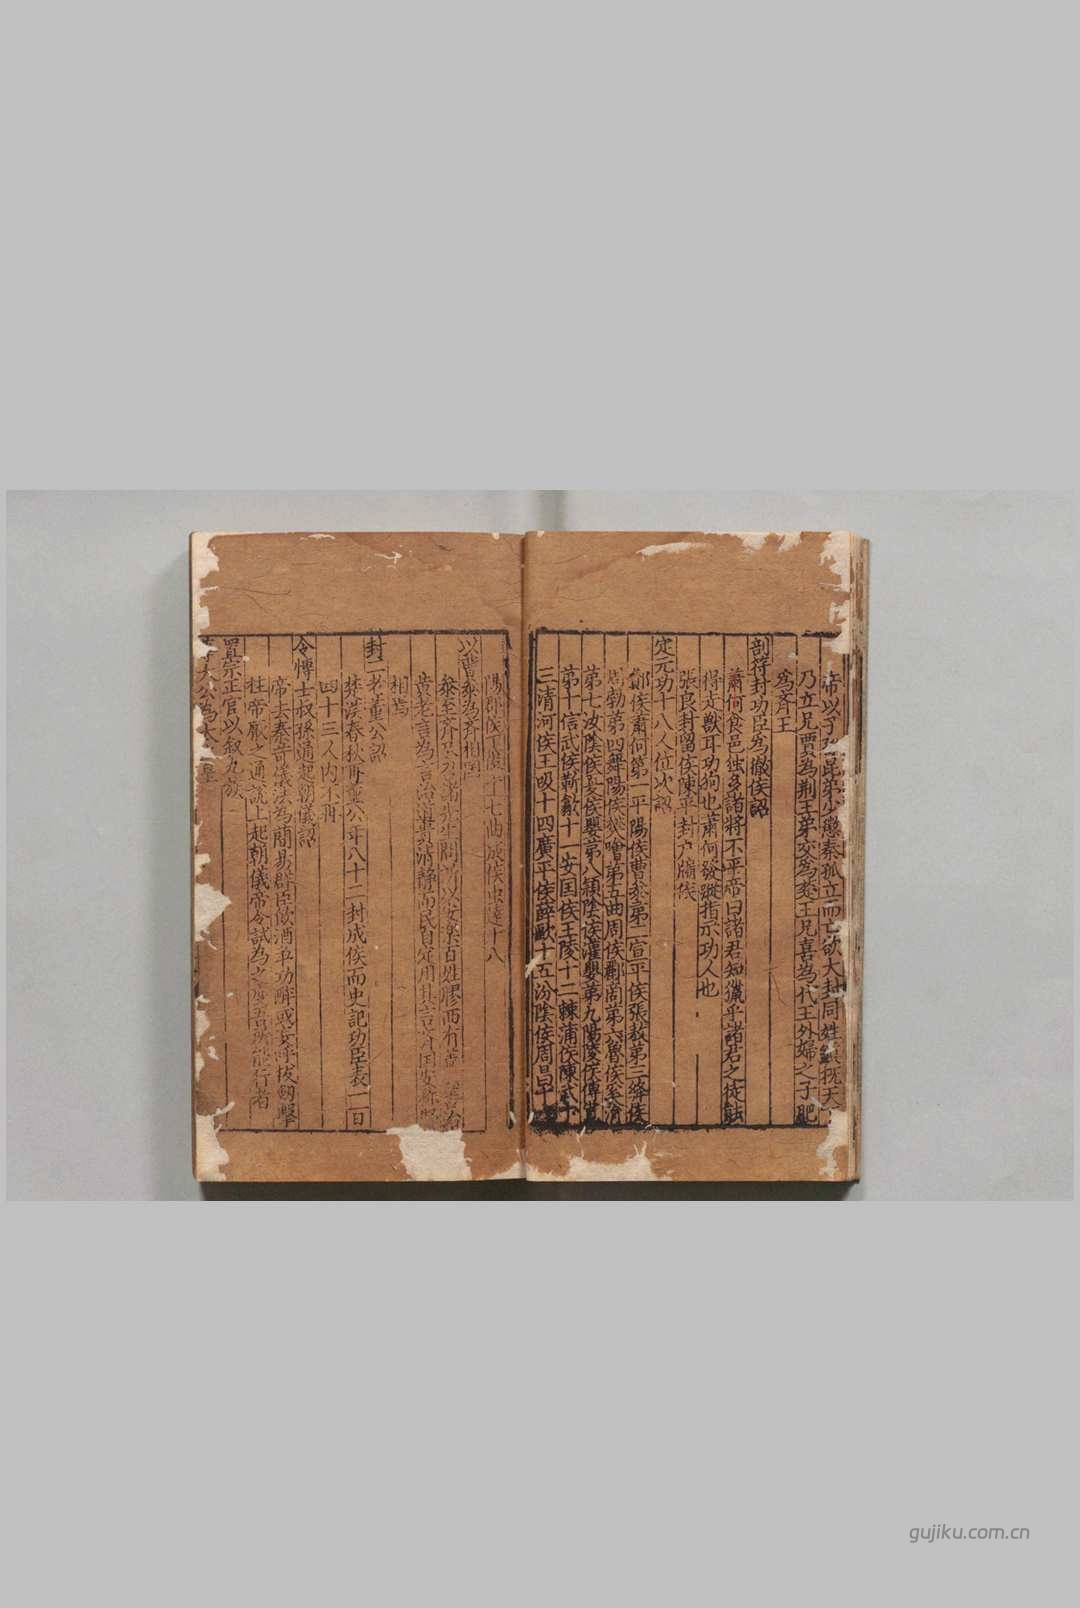 帝以子弱昆弟少懲秦孤立而亡欲大封同姓 撫天
乃立兄賈為荆王弟交為楚王兄喜為代王外婦之子肥
為齊王
剖符封功臣為徹侯詔
蕭何食邑独多諸將不平帝曰諸君知獵乎諸君之徒能
得走獸耳功狗也蕭何發蹤指示功人也
張良封留侯陳平封户牖侯
定元功十八人位次詔
酇侯蕭何第一平陽侯曹參第二宣平侯張敖第三絳侯
周勃第四舞陽侯樊噲第五曲周侯酈商第六魯侯奚涓
第七汝陰侯夏侯嬰第八頴陰侯灌嬰第九陽陵侯傅寬
第十信武侯靳歙十一安国侯王陵十二棘蒲侯陳武十
三清河侯王吸十四廣平侯薛歐十五汾陰侯周昌十
陽都侯丁復十七曲成侯虫達十八
以曹參為齊相国
參至齊 盖 先生問所以安集百姓膠西有
黄老言為言治道貴清静而民自定用其言齊国安
相焉
封二老董公詔
洪 春秋 八年八十二封成侯而史記功臣表一百
四十三人内不
令博士叔孫通起朝儀詔
帝去秦苛儀法為簡易群臣飲酒爭功醉或妄呼拔劒擊
柱帝厭之通說上起朝儀帝令試為之度吾所能行者
置宗正官以叙九族
太公為太 皇
gujiku.com.cn